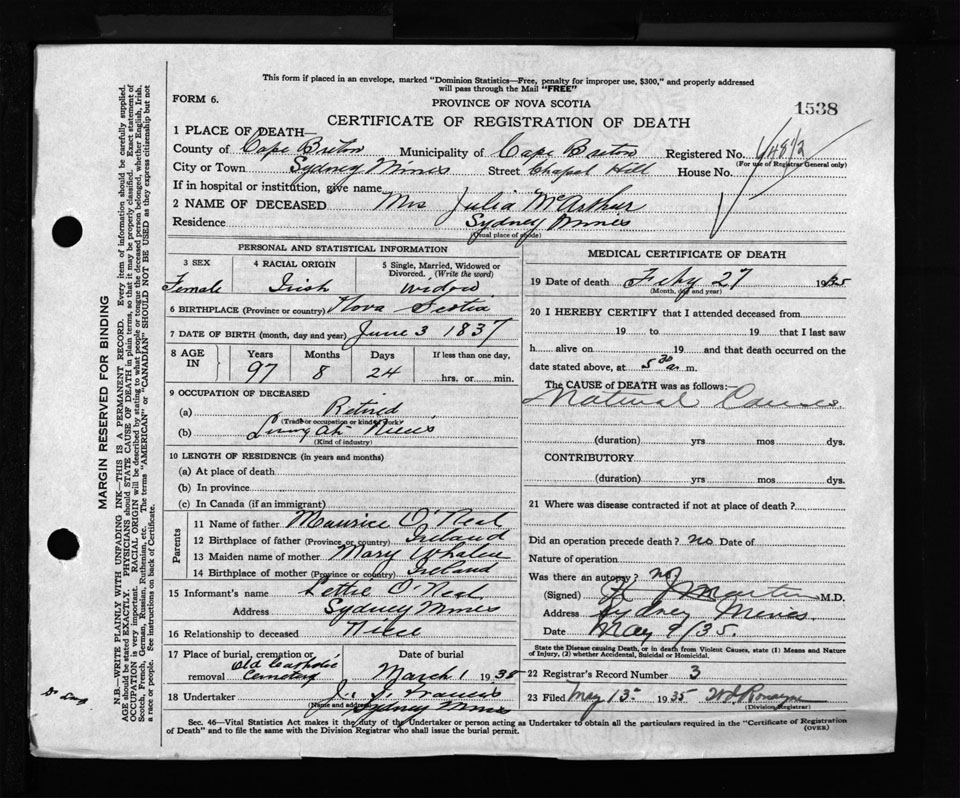 This form if placed in an envelope, marked "Dominion Statistics—Free, penalty for improper use, $300," and properly addressed
will pass through the Mail "FREE"
FORM 6.
PROVINCE OF NOVA SCOTIA
1538
CERTIFICATE OF REGISTRATION OF DEATH
1 PLACE OF DEATH—
County of Cape Breton Municipality of Cape Breton Registered No.
(For use of Registrar General only)
City or Town Sydney Mines Street Chapel Hill House No.
If in hospital or institution, give name
2 NAME OF DECEASED Mrs Julia McArthur
Residence Sydney Mines
(Usual place of abode)
PERSONAL AND STATISTICAL INFORMATION
3 SEX 4 RACIAL ORIGIN 5 Single, Married, Widowed or Divorced. (Write the word)
Female Irish widow
6 BIRTHPLACE (Province or country) Nova Scotia
7 DATE OF BIRTH (month, day and year) June 3 1837
8 AGE IN Years Months Days If less than one day,
97 8 24 hrs. or min.
9 OCCUPATION OF DECEASED
(a) Retired
(Trade or occupation or kind of work)
(b)
(Kind of industry)
10 LENGTH OF RESIDENCE (in years and months)
(a) At place of death
(b) In province
(c) In Canada (if an immigrant)
Parents
11 Name of father Maurice O'Neal
12 Birthplace of father (Province or country) Ireland
13 Maiden name of mother Mary Whalen
14 Birthplace of mother (Province or country) Ireland
15 Informant's name Lettie O'Neal
Address Sydney Mines
16 Relationship to deceased Niece
17 Place of burial, cremation or removal Old Catholic Cemetery
Date of burial
March 1 1935
18 Undertaker J. J. Francis
(Name and address)
Sydney Mines
MEDICAL CERTIFICATE OF DEATH
19 Date of death Feby 27 1935
(Month, day and year)
20 I HEREBY CERTIFY that I attended deceased from
19 to 19 that I last saw
h alive on 19 and that death occurred on the
date stated above, at 5 30 a. m.
The CAUSE of DEATH was as follows:
Natural Causes.
(duration) yrs mos dys.
CONTRIBUTORY
(duration) yrs mos dys.
21 Where was disease contracted if not at place of death?
Did an operation precede death? no Date of
Nature of operation
Was there an autopsy? no
(Signed) Martin M.D.
Address Sydney Mines.
Date May 9/35.
State the Disease causing Death, or in death from Violent Causes, state (1) Means and Nature
of Injury, (2) whether Accidental, Suicidal or Homicidal.
22 Registrar's Record Number 3
23 Filed May 13th 1935
(Division Registrar)
Sec. 46—Vital Statistics Act makes it the duty of the Undertaker or person acting as Undertaker to obtain all the particulars required in the "Certificate of Registration
of Death" and to file the same with the Division Registrar who shall issue the burial permit.
(OVER)
MARGIN RESERVED FOR BINDING
N.B.—WRITE PLAINLY WITH UNFADING INK—THIS IS A PERMANENT RECORD. Every item of information should be carefully supplied.
AGE should be stated EXACTLY. PHYSICIANS should STATE CAUSE OF DEATH in plain terms, so that it may be properly classified. Exact statement of
OCCUPATION is very important. RACIAL ORIGIN will be described by stating to what people or tongue the deceased person belonged, whether English, Irish,
Scotch, French, German, Russian, Ruthenian, etc. The terms "AMERICAN" or "CANADIAN" SHOULD NOT BE USED as they express citizenship but not
a race or people. See instructions on back of Certificate.